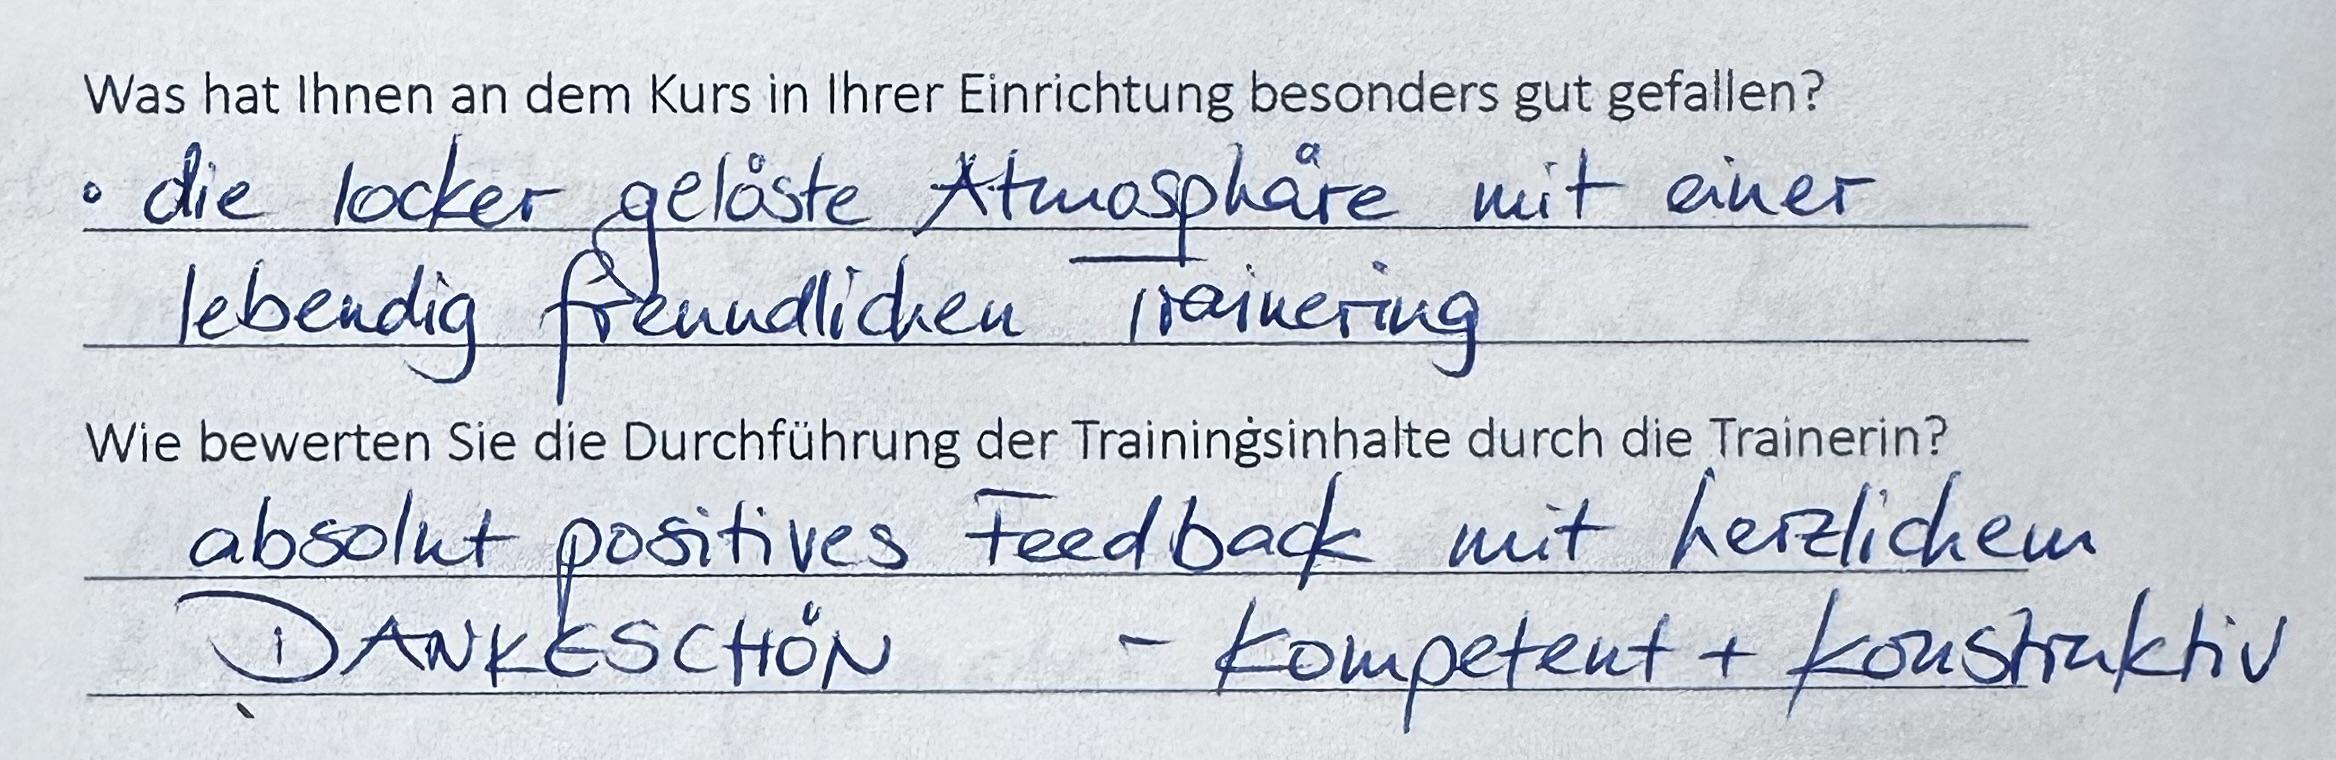 Was hat Ihnen an dem Kurs in Ihrer Einrichtung besonders gut gefallen?
• die locker gelöste Atmosphäre mit einer
lebendig freundlichen Trainering
Wie bewerten Sie die Durchführung der Trainingsinhalte durch die Trainerin?
absolut positives Feedback mit herzlichem
DANKESCHÖN - kompetent + konstruktiv